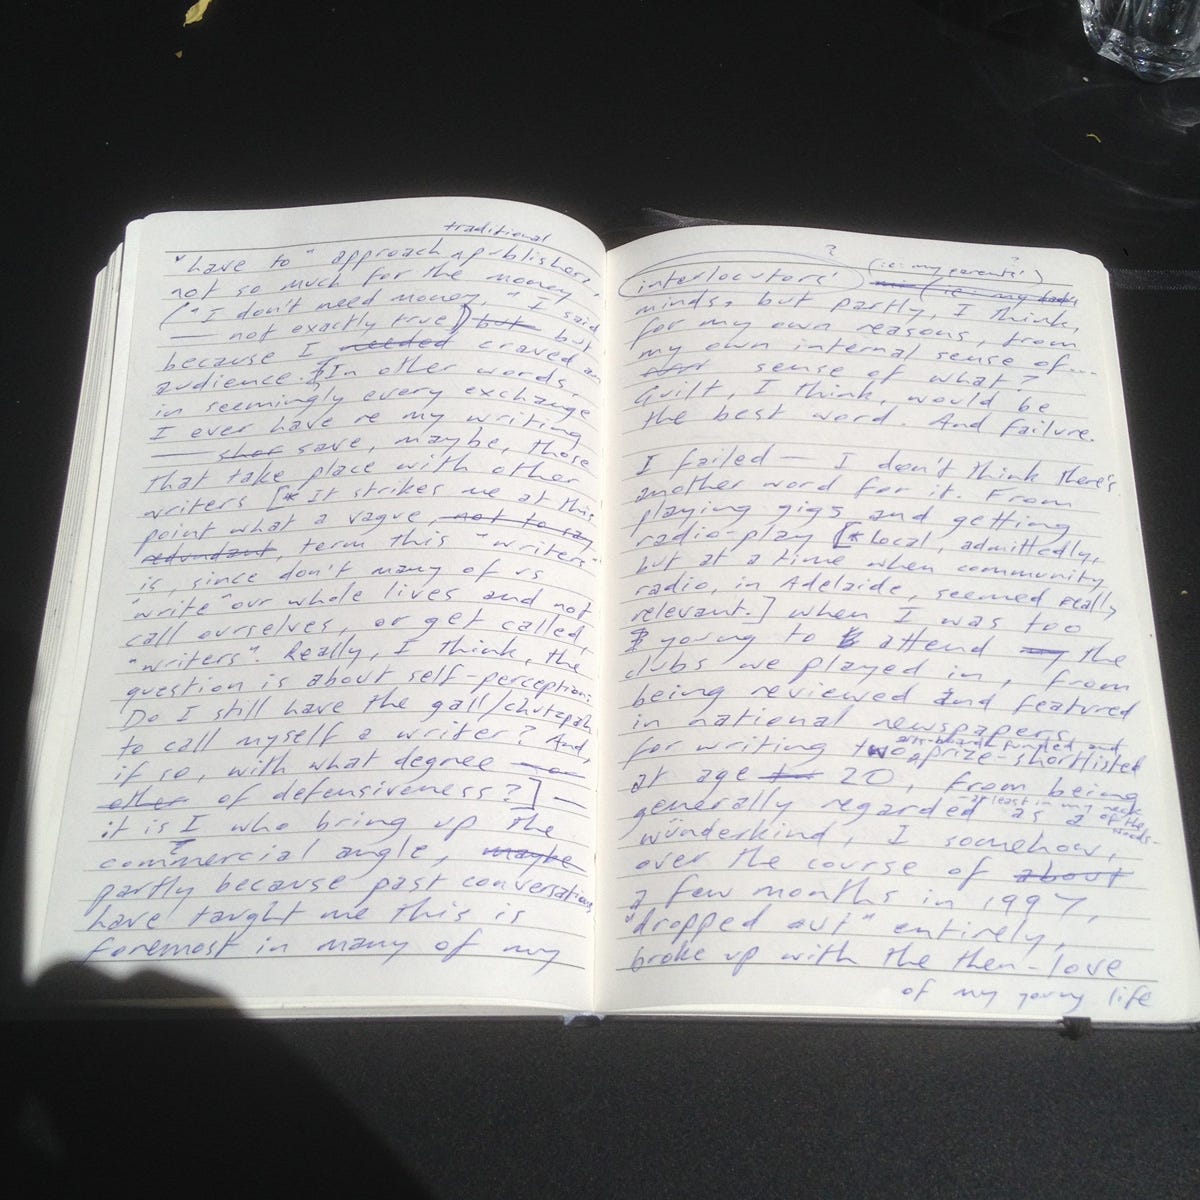 traditional
"have to" approach publishers,
not so much for the money
("I don't need money," I said
— not exactly true) but but
because I needed craved an
audience. In other words,
in seemingly every exchange
I ever have re my writing
— save, maybe, those
that take place with other
writers [* It strikes me at this
point what a vague, not to say
redundant, term this "writers"
is, since don't many of us
"write" our whole lives and not
call ourselves, or get called,
"writers". Really, I think, the
question is about self-perception:
Do I still have the gall/chutzpah
to call myself a writer? And,
if so, with what degree
of defensiveness?] —
it is I who bring up the
commercial angle, maybe
partly because past conversations
have taught me this is
foremost in many of my
? ?
interlocutors' (i.e. my parents')
minds, but partly, I think,
for my own reasons, from
my own internal sense of...
sense of what?
Guilt, I think, would be
the best word. And failure.
I failed — I don't think there's
another word for it. From
playing gigs and getting
radio-play [* local, admittedly,
but at a time when community
radio, in Adelaide, seemed really
relevant.] when I was too
young to attend my the
clubs we played in, from
being reviewed and featured
in national newspapers
for writing two arts-board funded, and prize-shortlisted
at age 20, from being
generally regarded at least in my neck of the woods- as a
wünderkind, I somehow,
over the course of about
a few months in 1997,
"dropped out" entirely,
broke up with the then-love
of my young life